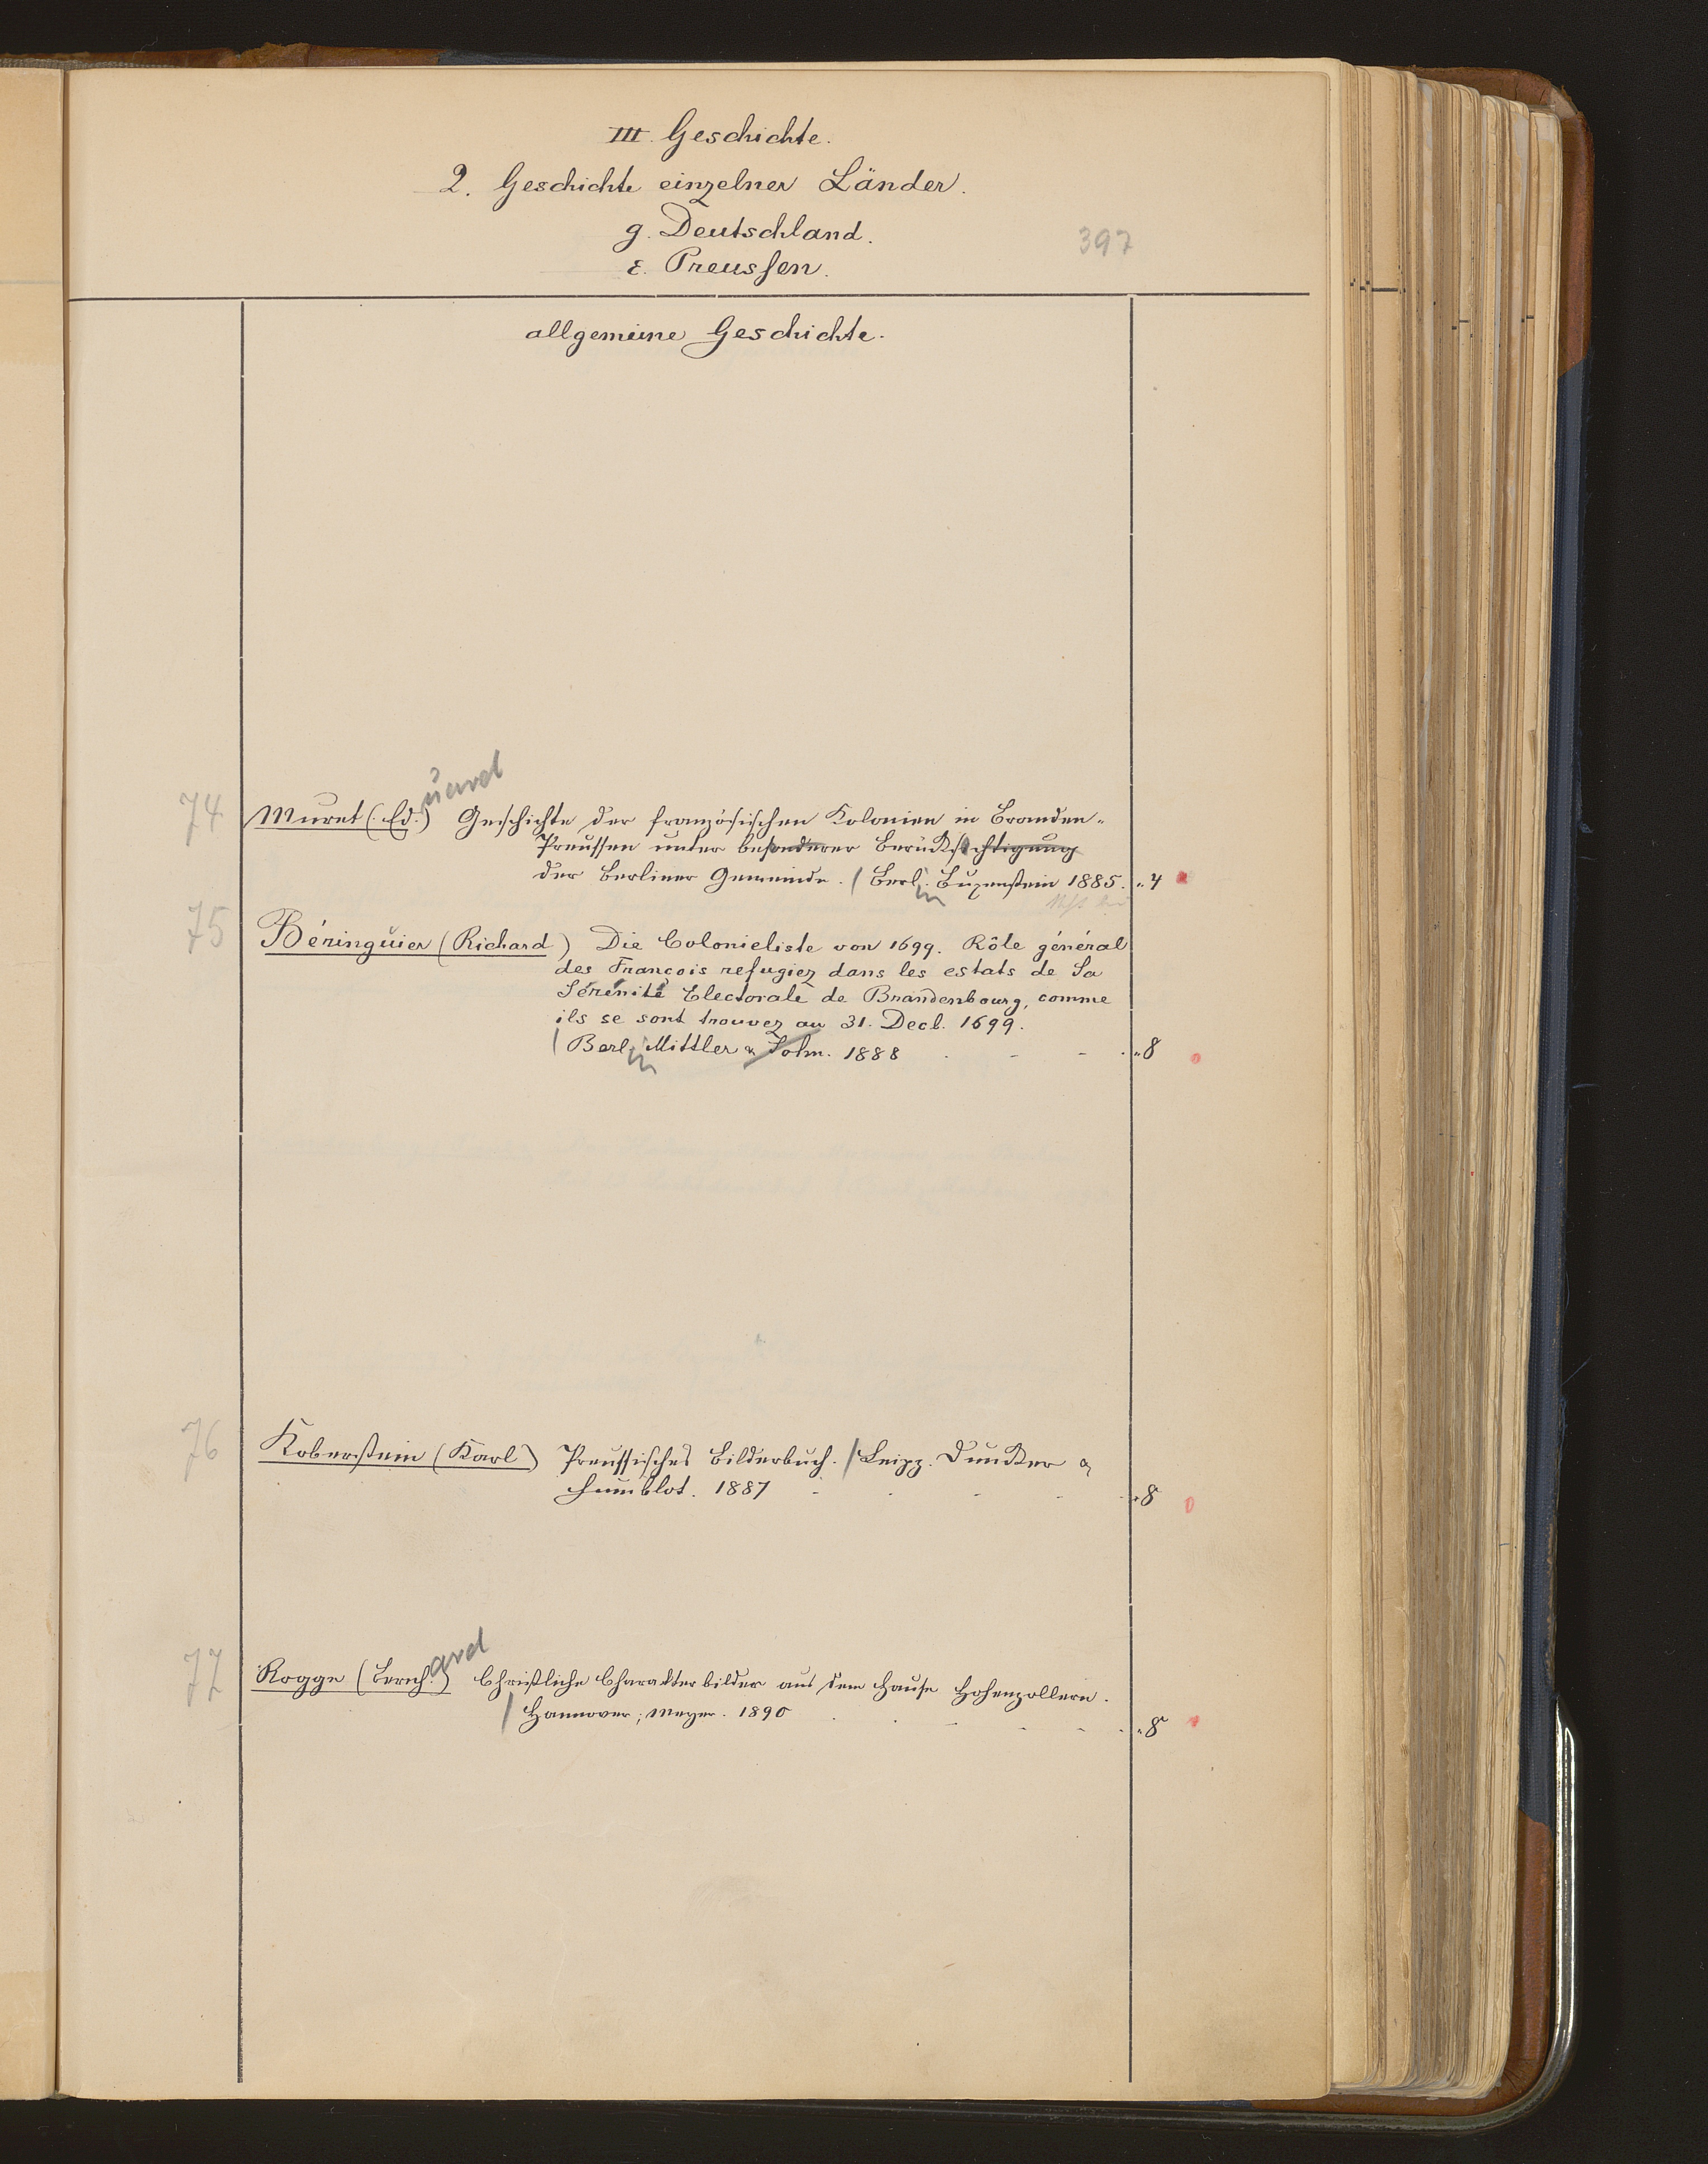 III. Geschichte.
2. Geschichte einzelner Länder.
g. Deutschland.
397
ε. Preussen.
allgemeine Geschichte.
74
Muret (Ed.) uard Geschichte der französischen Kolonien in Branden-
Preussen unter besonderer Berücksichtigung
der Berliner Gemeinde. / Berl. in Büxenstein 1885. " 4
75
Béringuier (Richard) Die Colonieliste von 1699. Rôle général
des François refugiez dans les estats de Sa
Sérénité Electorale de Brandenbourg, comme
ils se sont trouvez au 31. Decb. 1699.
/ Berl. in Mittler & Sohn. 1888 " 8
76
Koberstein (Karl) Preussisches Bilderbuch. / Leipz. Duncker &
Humblot. 1887 " 8
77
Rogge (Bernh.) ard Christliche Charakterbilder aus dem Hause Hohenzollern.
/ Hannover; Meyer. 1890 " 8